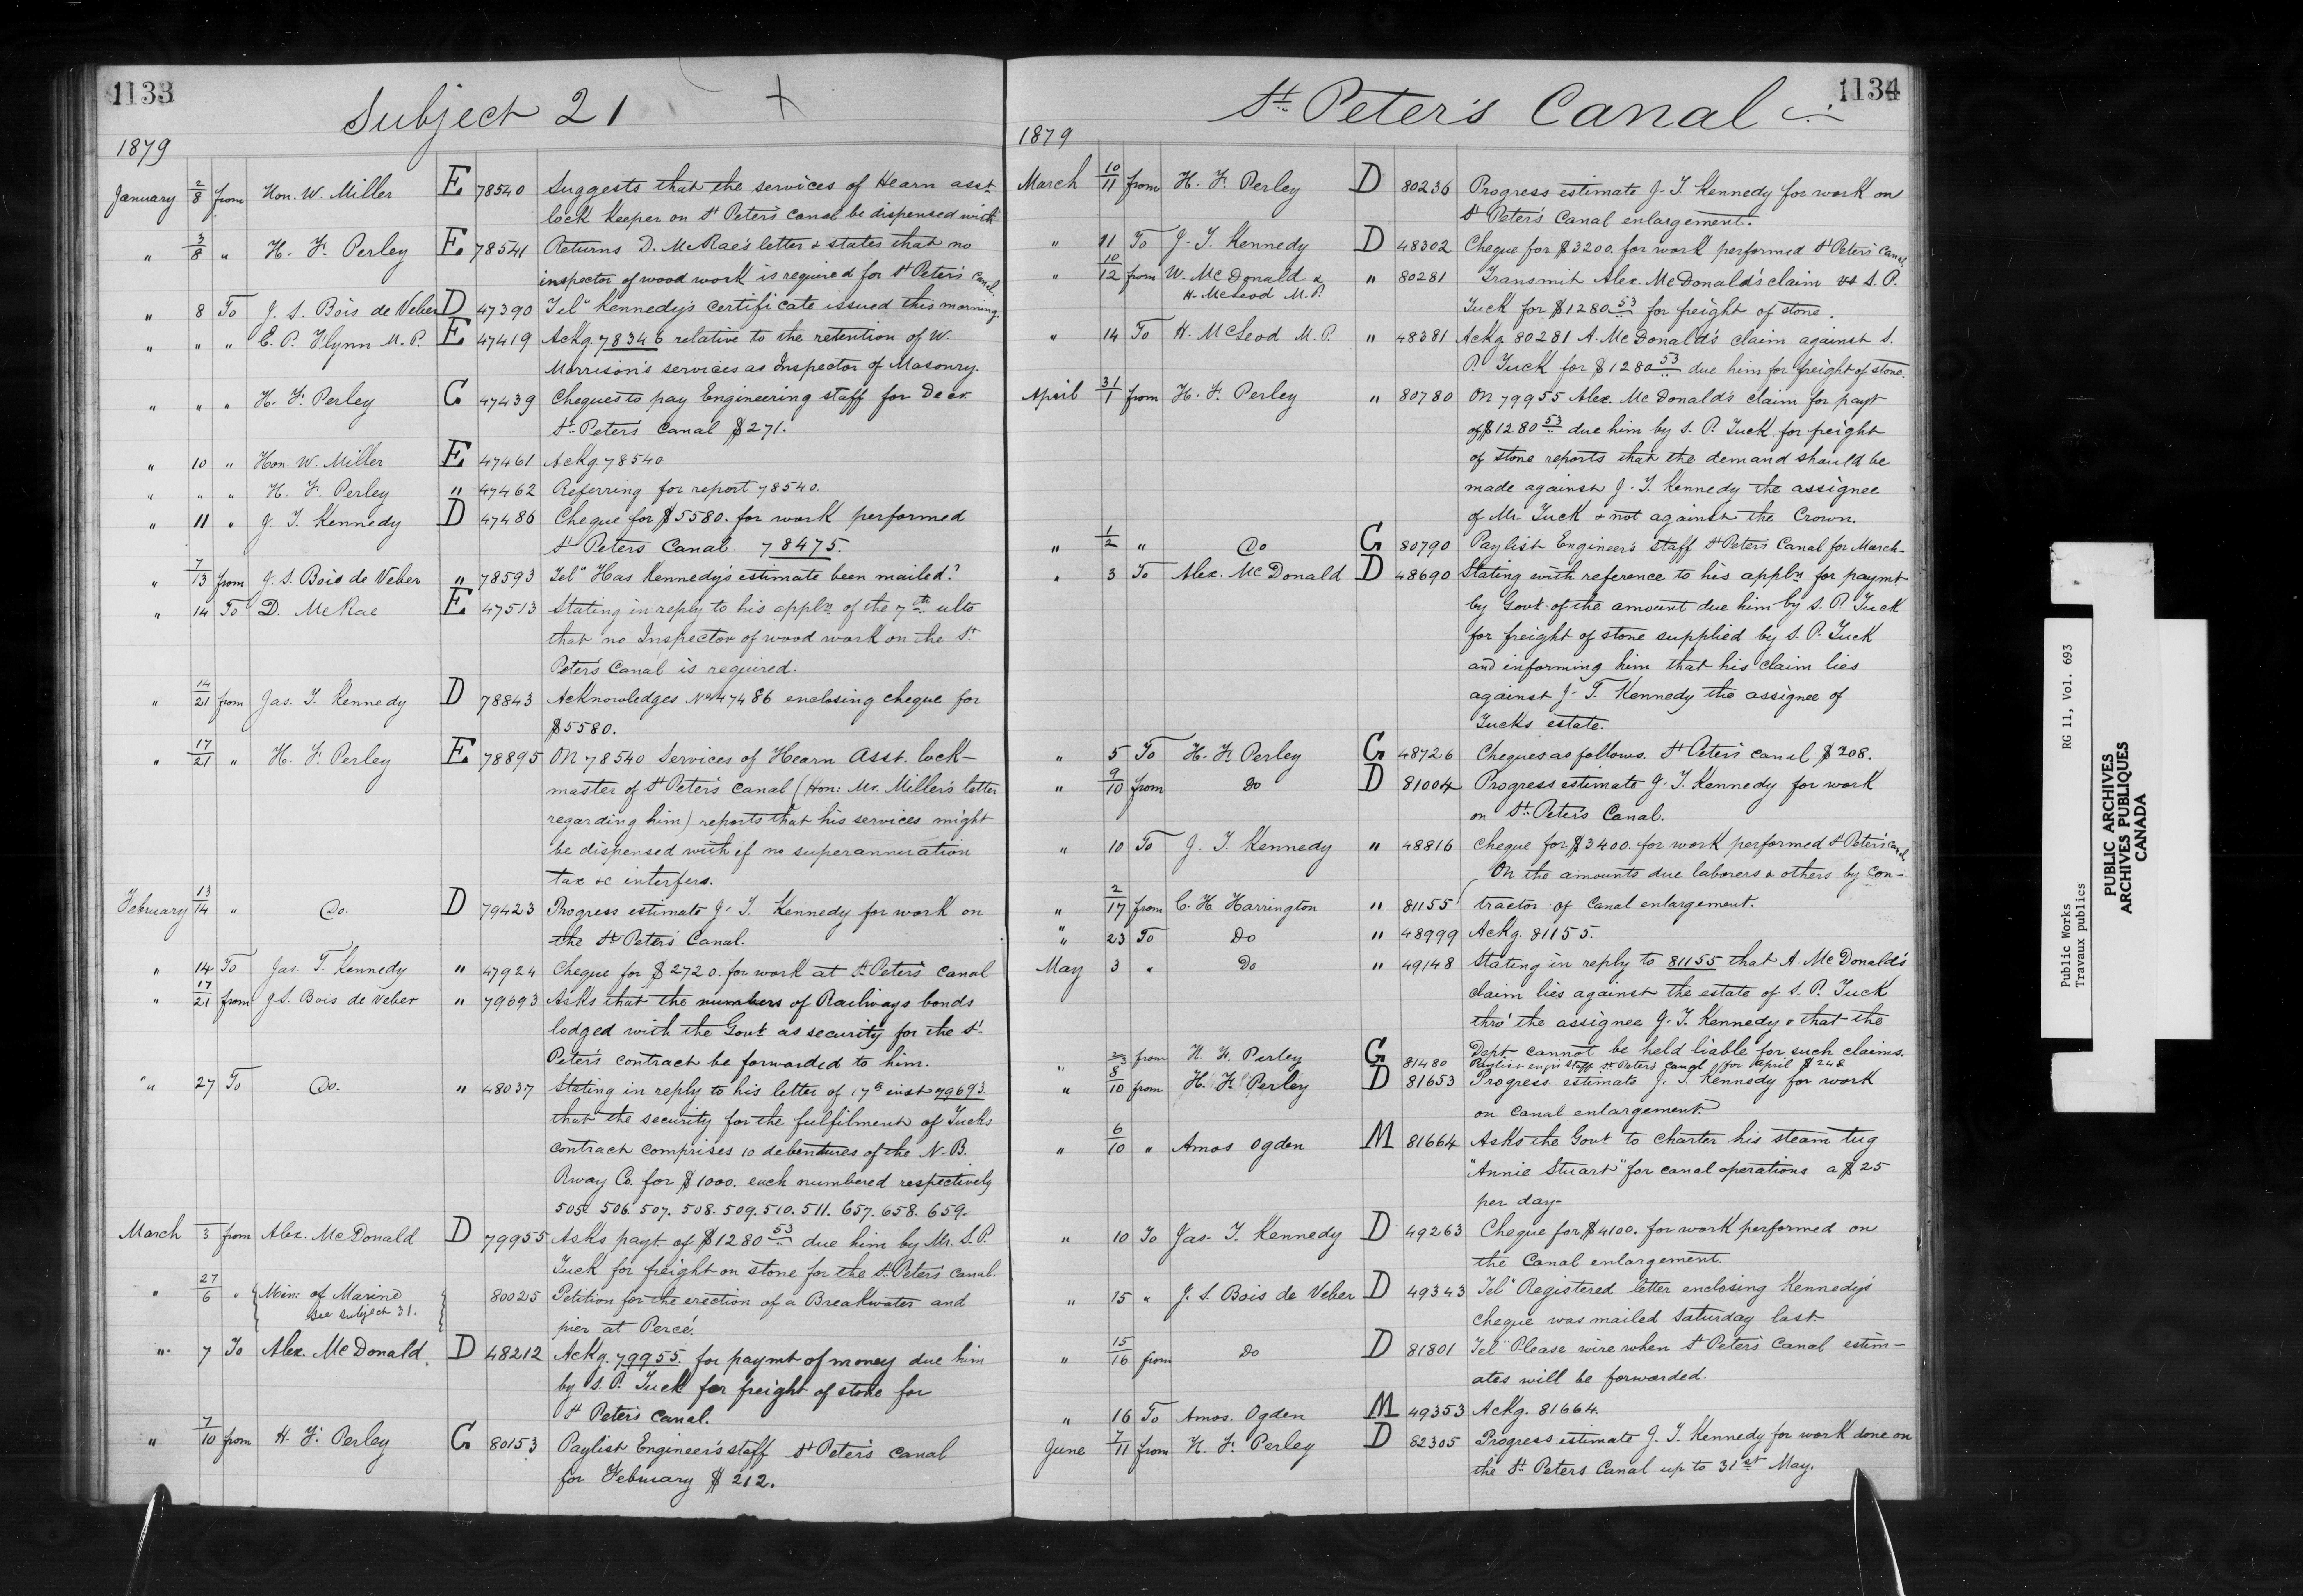 1133
Subject 21
1879
January 2/8 from Hon. W. Miller E 78540 Suggests that the services of Hearn asst
lock keeper on St Peter's canal be dispensed with
" 3/8 " H. F. Perley E 78541 Returns D. McRae's letter & states that no
inspector of wood work is required for St Peter's canal.
" 8 To J. S. Bois de Veber D 47390 Tel" Kennedy's certificate issued this morning.
" " " E. P. Flynn M. P. E 47419 Ackg. 78346 relative to the retention of W.
Morrison's services as Inspector of Masonry.
" " " H. F. Perley G 47439 Cheques to pay Engineering staff for Decr
St Peter's Canal $271.
" 10 " Hon. W. Miller E 47461 Ackg. 78540
" " " H. F. Perley " 47462 Referring for report 78540.
" 11 " J. T. Kennedy D 47486 Cheque for $5580. for work performed
St Peters Canal 78475.
" 7/13 from J. S. Bois de Veber " 78593 Tel" Has Kennedy's estimate been mailed?
" 14 To D. McRae E 47513 Stating in reply to his appln of the 7th ulto
that no Inspector of wood work on the St
Peter's Canal is required.
" 14/21 from Jas. T. Kennedy D 78843 Acknowledges No 47486 enclosing cheque for
$5580.
" 17/21 " H. F. Perley E 78895 On 78540 Services of Hearn Asst. lock-
master of St Peter's canal (Hon: Mr. Miller's letter
regarding him) reports that his services might
be dispensed with if no superannuation
tax &c interfers.
February 13/14 " Do. D 79423 Progress estimate J. T. Kennedy for work on
the St Peter's Canal.
" 14 To Jas. T. Kennedy " 47924 Cheque for $2720. for work at St Peter's canal
" 17/21 from J. S. Bois de Veber " 79693 Asks that the numbers of Railways bonds
lodged with the Govt as security for the St
Peter's contract be forwarded to him.
" 27 To Do. " 48037 Stating in reply to his letter of 17th inst 79693
that the security for the fulfilment of Tucks
contract comprises 10 debentures of the N. B.
Rway Co. for $1000. each numbered respectively
505. 506. 507. 508. 509. 510. 511. 657. 658. 659.
March 3 from Alex. McDonald D 79955 Asks payt of $1280 53 due him by Mr. S. P.
Tuck for freight on stone for the St Peter's canal.
" 27/6 " Min: of Marine 80025 Petition for the erection of a Breakwater and
see subject 31.
pier at Percé.
" 7 To Alex. McDonald. D 48212 Ackg. 79955. for paymt of money due him
by S. P. Tuck for freight of stone for
St Peter's canal.
" 7/10 from H. F. Perley G 80153 Paylist Engineer's staff St Peter's canal
for February $212.
1134
St Peter's Canal
1879
March 10/11 from H. F. Perley D 80236 Progress estimate J. T. Kennedy for work on
St Peter's Canal enlargement.
" 11 To J. T. Kennedy D 48302 Cheque for $3200. for work performed St Peter's Canal
" 10/12 from W. McDonald & " 80281 Transmit Alex. McDonald's claim vs S. P.
H. McLeod M. P.
Tuck for $1280 53 for freight of stone.
" 14 To H. McLeod M. P. " 48381 Ackg 80281 A. McDonald's claim against S.
P. Tuck for $1280 53 due him for freight of stone.
April 31/1 from H. F. Perley " 80780 On 79955 Alex. McDonald's claim for payt
of $1280 53 due him by S. P. Tuck for freight
of stone reports that the demand should be
made against J. T. Kennedy the assignee
of Mr. Tuck & not against the Crown.
" 1/2 " Do G 80790 Paylist Engineer's staff St Peter's Canal for March-
" 3 To Alex. McDonald D 48690 Stating with reference to his appln for paymt
by Govt of the amount due him by S. P. Tuck
for freight of stone supplied by S. P. Tuck
and informing him that his claim lies
against J. T. Kennedy the assignee of
Tucks estate.
" 5 To H. F. Perley G 48726 Cheques as follows. St Peter's canal $208.
" 9/10 from Do D 81004 Progress estimate J. T. Kennedy for work
on St Peter's Canal.
" 10 To J. T. Kennedy " 48816 Cheque for $3400. for work performed St Peter's canal
On the amounts due laborers & others by con-
" 2/17 from C. H. Harrington " 81155 tractor of Canal enlargement.
" 23 To Do " 48999 Ackg. 81155.
May 3 " Do " 49148 Stating in reply to 81155 that A. McDonald's
claim lies against the estate of S. P. Tuck
thro' the assignee J. T. Kennedy & that the
Dept. cannot be held liable for such claims.
" 2/3 from H. F. Perley G 81480 Paylist engrs staff St Peters Canal for April $248
" 8/10 from H. F. Perley D 81653 Progress estimate J. T. Kennedy for work
on Canal enlargement.
" 6/10 " Amos Ogden M 81664 Asks the Govt to charter his steam tug
"Annie Stuart" for canal operations a $25
per day-
" 10 To Jas. T. Kennedy D 49263 Cheque for $4100. for work performed on
the Canal enlargement.
" 15 " J. S. Bois de Veber D 49343 Tel" Registered letter enclosing Kennedy's
cheque was mailed Saturday last.
" 15/16 from Do D 81801 Tel" Please wire when St Peter's Canal estim-
ates will be forwarded.
" 16 To Amos. Ogden M 49353 Ackg. 81664.
June 7/11 from H. F. Perley D 82305 Progress estimate J. T. Kennedy for work done on
the St Peters Canal up to 31st May.
Public Works RG 11, Vol. 693
Travaux publics
PUBLIC ARCHIVES
ARCHIVES PUBLIQUES
CANADA